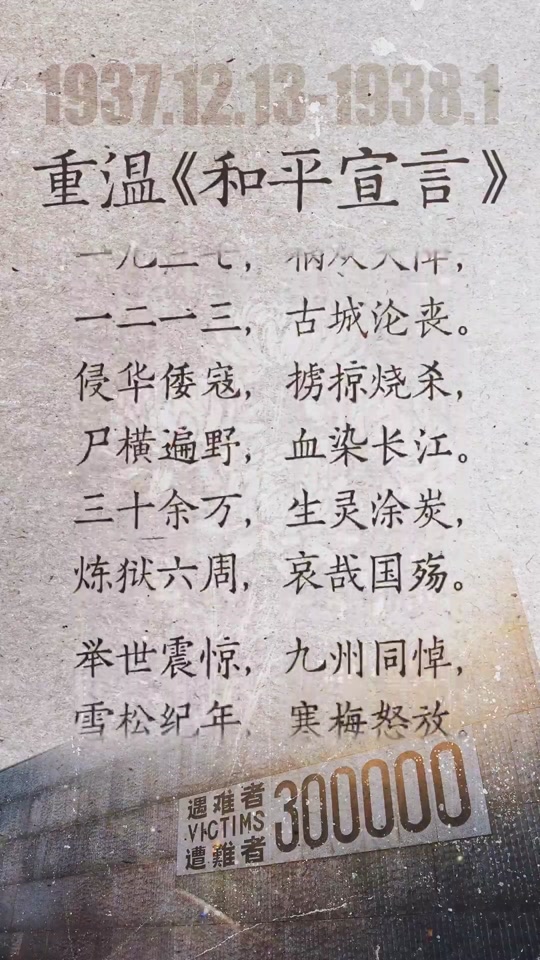 1937.12.13-1938.1
重温《和平宣言》
一九三七，祸从天降，
一二一三，古城沦丧。
侵华倭寇，掳掠烧杀，
尸横遍野，血染长江。
三十余万，生灵涂炭，
炼狱六周，哀哉国殇。
举世震惊，九州同悼，
雪松纪年，寒梅怒放。
遇难者
VICTIMS
遭難者
300000